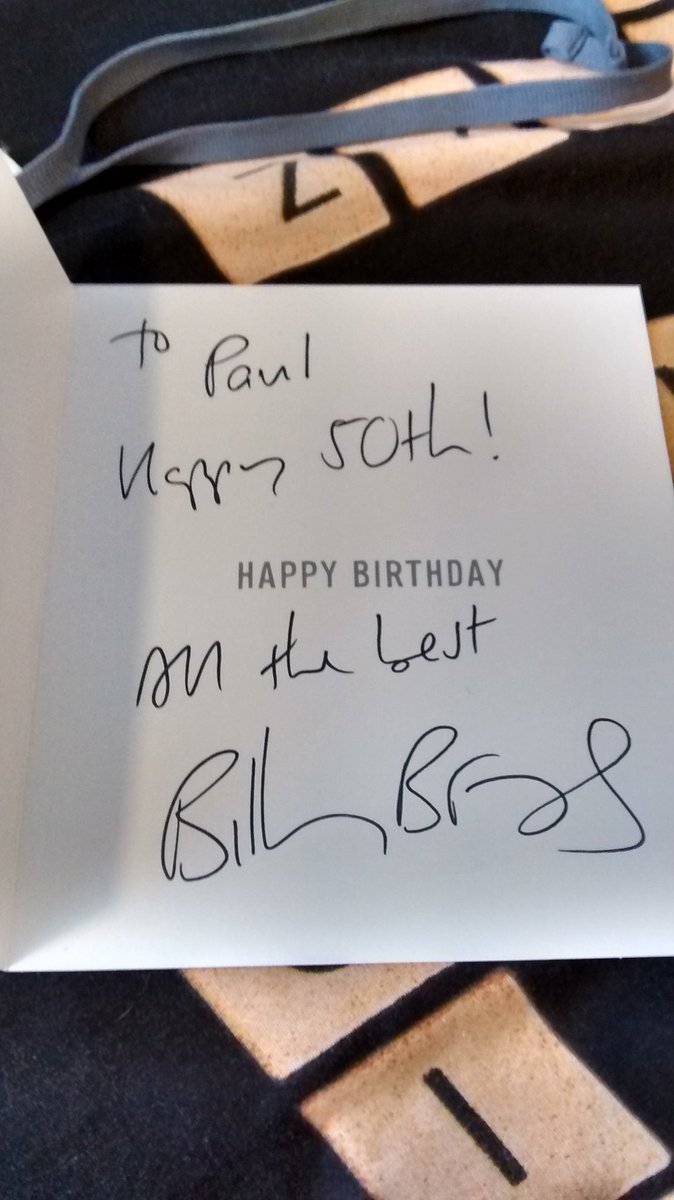 Z
to Paul
Happy 50th!
HAPPY BIRTHDAY
All the best
Billy Bragg
I